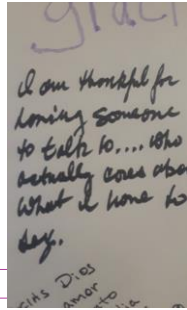 graci
I am thankful for
having someone
to talk to.... who
actually cares abo
What I have to
say.
cias Dios
amor